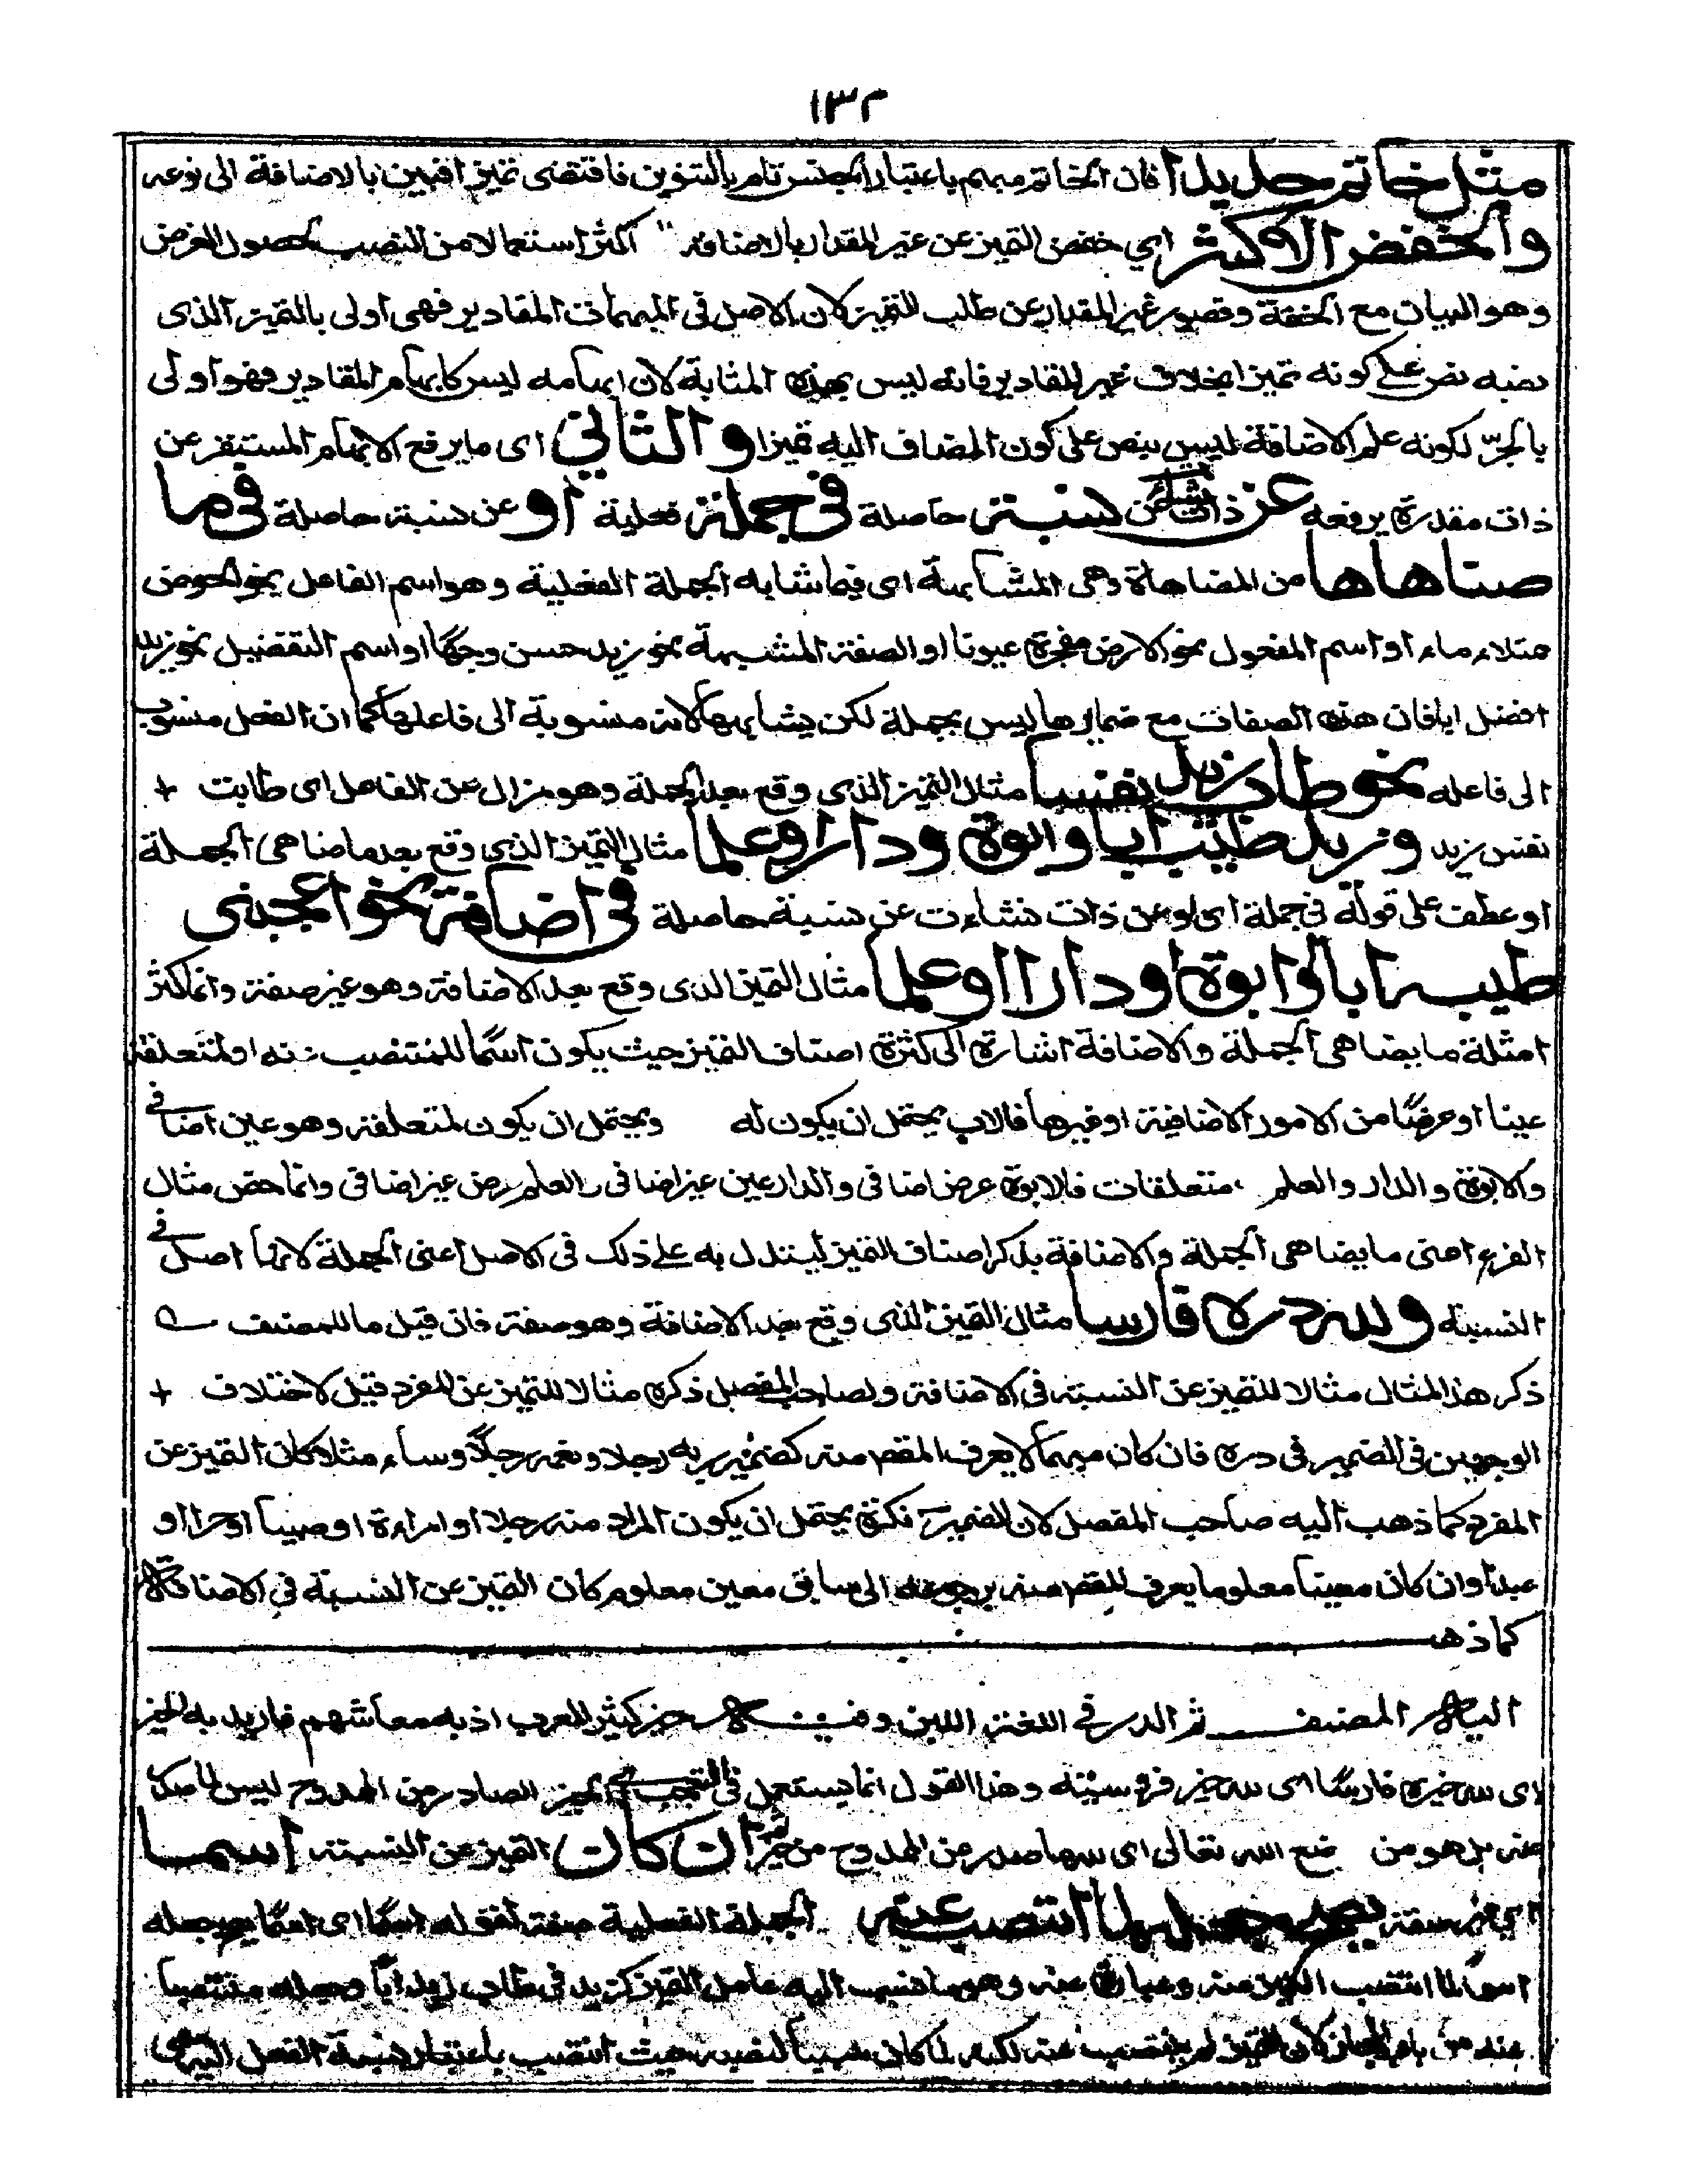 ١٣٢
مثل خاتم حديدا فان الخاتم مبهم باعتبار الجنس تام بالتنوين فاقتضى تميزا فبين بالاضافة الى نوعه
والخفض الاكثر اي خفض التميز عن غير المقدار بالاضافة اكثر استعمالا من النصب لحصول الغرض
وهو البيان مع الخفة وقصور غير المقدار عن طلب التميز لان الاصل فى المبهمات المقادير فهى اولى بالتميز الذى
نصبه نص على كونه تميزا بخلاف غير المقادير فانه ليس بهذه المثابة لان ابهامه ليس كابهام المقادير فهو اولى
بالجرّ لكونه علم الاضافة ليس ينص على كون المضاف اليه تميزا والثاني اى ما يرفع الابهام المستقر عن
ذات مقدرة يرفعه عن ذات نشأت عن نسبة حاصلة فى جملة فعلية او عن نسبة حاصلة فى ما
ضاهاها من المضاهاة وهى المشابهة اى فيما شابه الجملة الفعلية وهو اسم الفاعل نحو الحوض
ممتلاء ماء او اسم المفعول نحو الارض مفجرة عيونا او الصفة المشبهة نحو زيد حسن وجها او اسم التفضيل نحو زيد
افضل ابا فان هذه الصفات مع ضمائرها ليس بجملة لكن يشابهها لانه منسوبة الى فاعلها كما ان الفعل منسوب
الى فاعله نحو طاب زيد نفسا مثال التميز الذى وقع بعد الجملة وهو مزال عن الفاعل اى طابت
نفس زيد وزيد طيب ابا وابوة ودارا وعلما مثال التميز الذي وقع بعد ما ضاهى الجملة
او عطف على قوله فى جملة اى او عن ذات نشاءت عن نسبة حاصلة فى اضافة نحو اعجبنى
طيبه ابا وابوة ودارا وعلما مثال التميز الذى وقع بعد الاضافة وهو غير صفة وانما كثر
امثلة ما يضاهى الجملة والاضافة اشارة الى كثرة اصناف التميز حيث يكون اسما للمنتصب عنه او لمتعلقه
عينا او عرضا من الامور الاضافية او غيرها فالاب يحتمل ان يكون له ويحتمل ان يكون لمتعلقه وهو عين اضافى
والابوة والدار والعلم متعلقات فالابوة عرض اضافى والدار عين غير اضافى والعلم عرض غير اضافى وانما خص مثال
الفرع اعنى ما يضاهى الجملة والاضافة بذكر اصناف التميز ليستدل به على ذلك فى الاصل اعنى الجملة لانها اصل فى
النسبة ولله دره فارسا مثال التميز الذى وقع بعد الاضافة وهو صفة فان قيل ما للمصنف
ذكر هذا المثال مثالا للتميز عن النسبة فى الاضافة ولصاحب المفصل ذكره مثالا للتميز عن المفرد قيل لاختلاف
الوجهين فى الضمير فى دره فان كان مبهما لا يعرف المقصد منه كضمير ربه رجلا ونعم رجلا وساء مثلا كان التميز عن
المفرد كما ذهب اليه صاحب المفصل لان الضمير نكرة يحتمل ان يكون المراد منه رجلا او امراءة او صبيا او حرا او
عبدا وان كان معينا معلوما يعرف المقصد منه برجوعه الى سابق معين معلوم كان التميز عن النسبة فى الاضافة
كما ذهب
اليه المصنف ثم الدر فى اللغة اللبن وفيه خير كثير للعرب اذ به معاشهم فاريد به الخير
اى لله خيره فارسا اى لله خير فروسيته وهذا القول انما يستعمل فى التعجب اى الخير الصادر من الممدوح ليس صادرا
منه بل هو من صنع الله تعالى اى لله ما صدر من الممدوح من خير ثم ان كان التميز عن النسبة اسما
اى غير صفة يصح جعله لما انتصب عنه الجملة الفعلية صفة لقوله اسما اى اسما يصح جعله
اسما لما انتصب التميز عنه وعبارة عنه وهو ما نسب اليه عامل التميز كزيد فى طاب زيد ابا وجعله منتصبا
عنه من باب المجاز لان التميز لم ينتصب عنه لكنه لما كان سببا لنصبه حيث انتصب باعتبار نسبة الفعل اليه